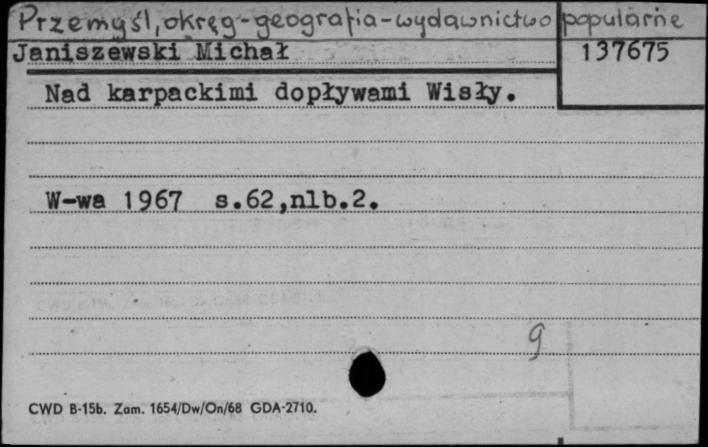 Przemyśl, okręg-geografia-wydawnictwo popularne
Janiszewski Michał
137675
Nad karpackimi dopływami Wisły.
W-wa 1967 s.62,nlb.2.
g
CWD B-15b. Zam. 1654/Dw/On/68 GDA-2710.